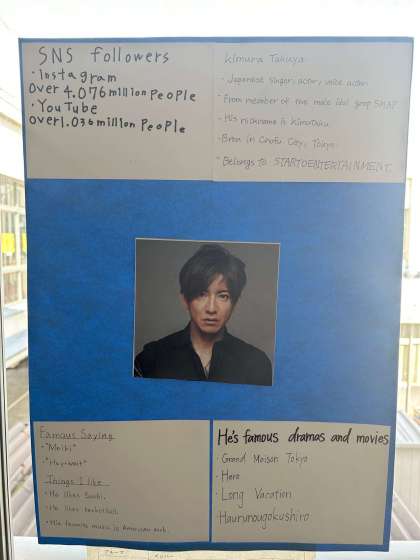 SNS followers
・Instagram
Over 4.076 million People
・YouTube
over 1.036 million People
Kimura Takuya
・Japanese singer, actor, voice actor
・From member of the male idol group SMAP
・His nickname is Kimutaku.
・Bron in Chofu City, Tokyo.
・Belongs to STARTOENTERTAINMENT.
Famous Saying
・"Meibi"
・"Hey wait"
Things I like
・He likes Sushi.
・He likes basketball.
・His favorite music is American
He's famous dramas and movies
・Grand Maison Tokyo
・Hero
・Long Vacation
Haurunougokushiro